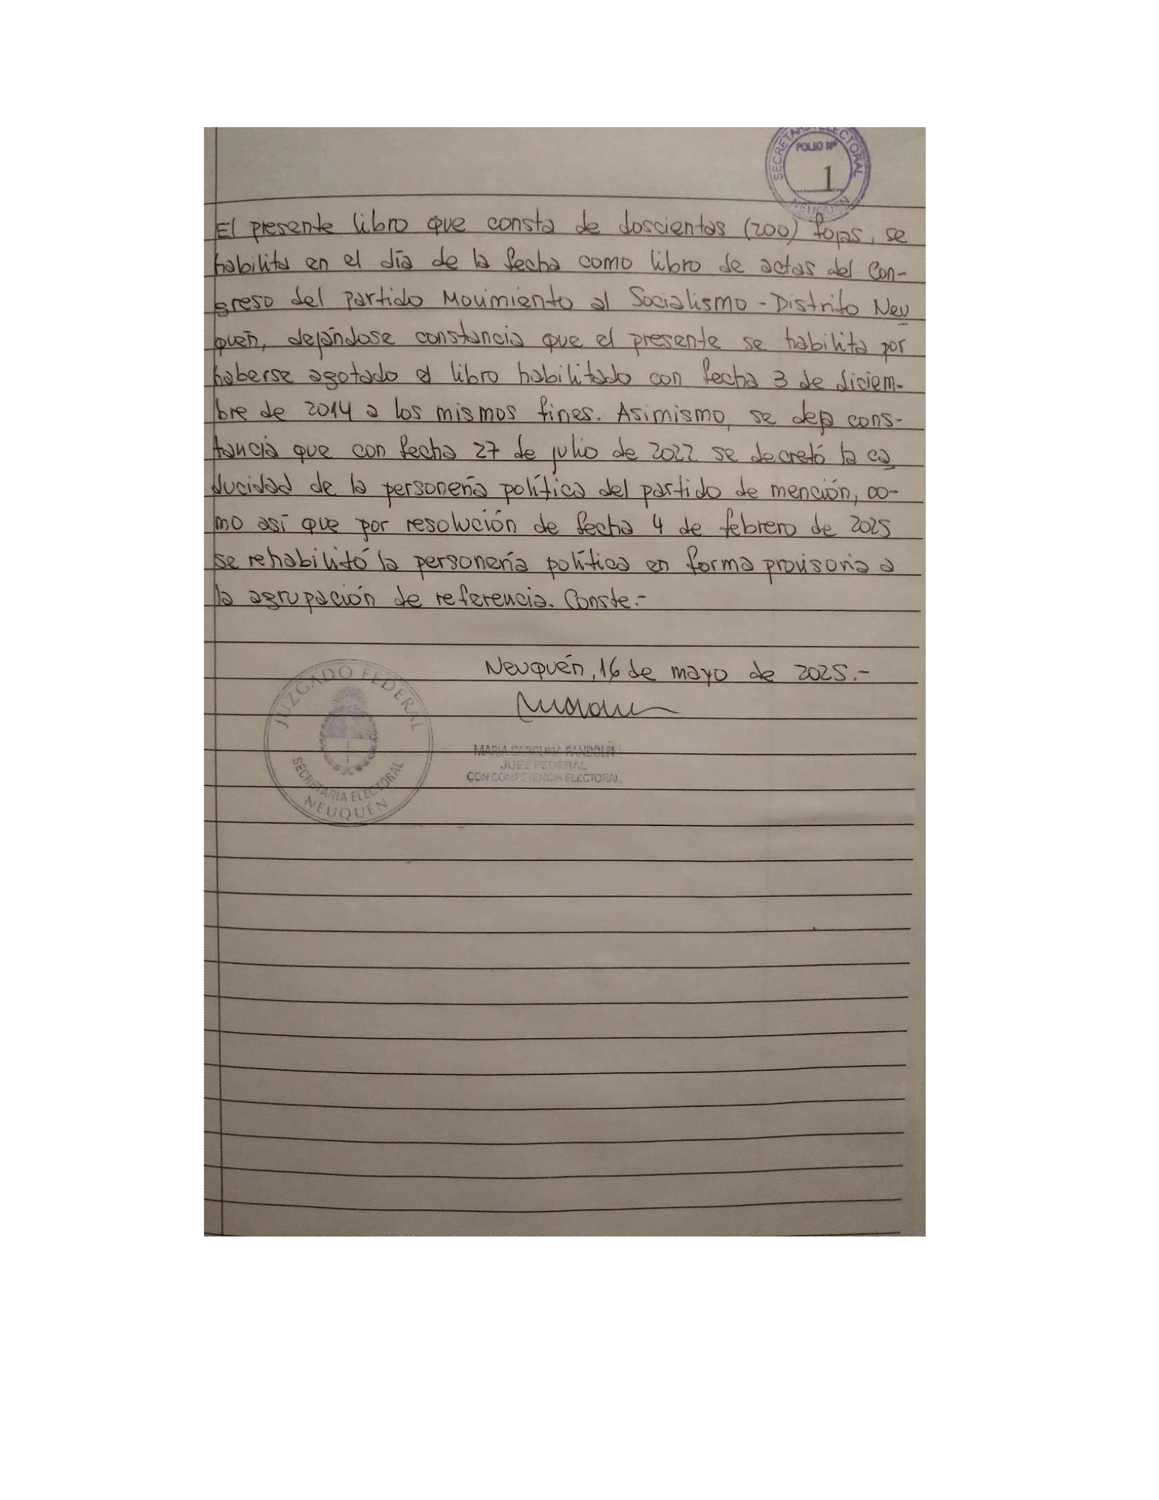 SECRETARIA ELECTORAL
FOLIO Nº
1
NEUQUÉN
El presente libro que consta de doscientas (200) fojas, se
habilita en el día de la fecha como libro de actas del Con-
greso del partido Movimiento al Socialismo - Distrito Neu
quén, dejándose constancia que el presente se habilita por
haberse agotado el libro habilitado con fecha 3 de diciem-
bre de 2014 a los mismos fines. Asimismo, se deja cons-
tancia que con fecha 27 de julio de 2022 se decretó la ca
ducidad de la personería política del partido de mención, co-
mo así que por resolución de fecha 4 de febrero de 2025
se rehabilitó la personería política en forma provisoria a
la agrupación de referencia. Conste.-
Neuquén, 16 de mayo de 2025.-
JUZGADO FEDERAL
SECRETARIA ELECTORAL
NEUQUÉN
MARIA CAROLINA PANDOLFI
JUEZ FEDERAL
CON COMPETENCIA ELECTORAL